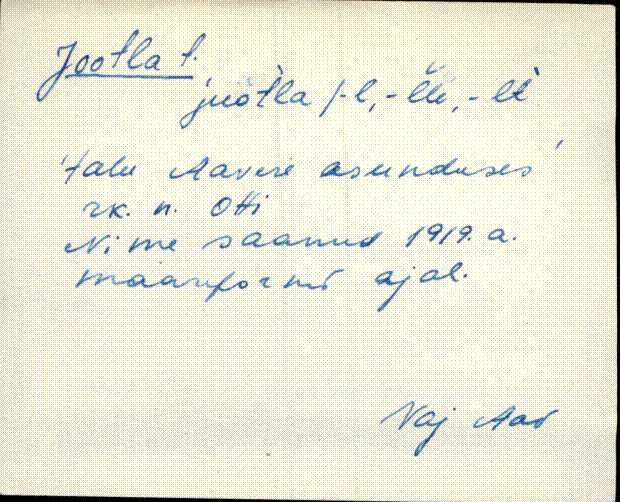 Jootla t.
juòtla /-l, -lle, -lt
'talu Aavere asunduses'
rk. n. Otti
Nime saanud 1919. a.
maareformi ajal.
Vaj Aav